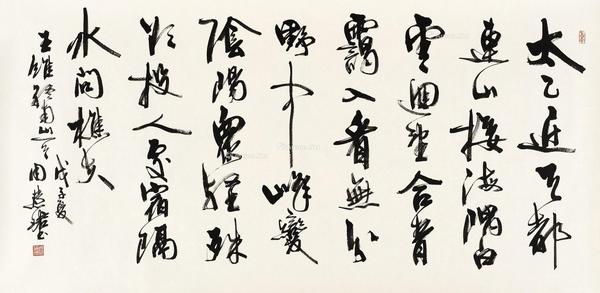 太乙近天都
連山接海隅白
雲迴望合青
靄入看無分
野中峰變
陰陽眾壑殊
欲投人處宿隔
水問樵夫
王維終南山
戊子夏周